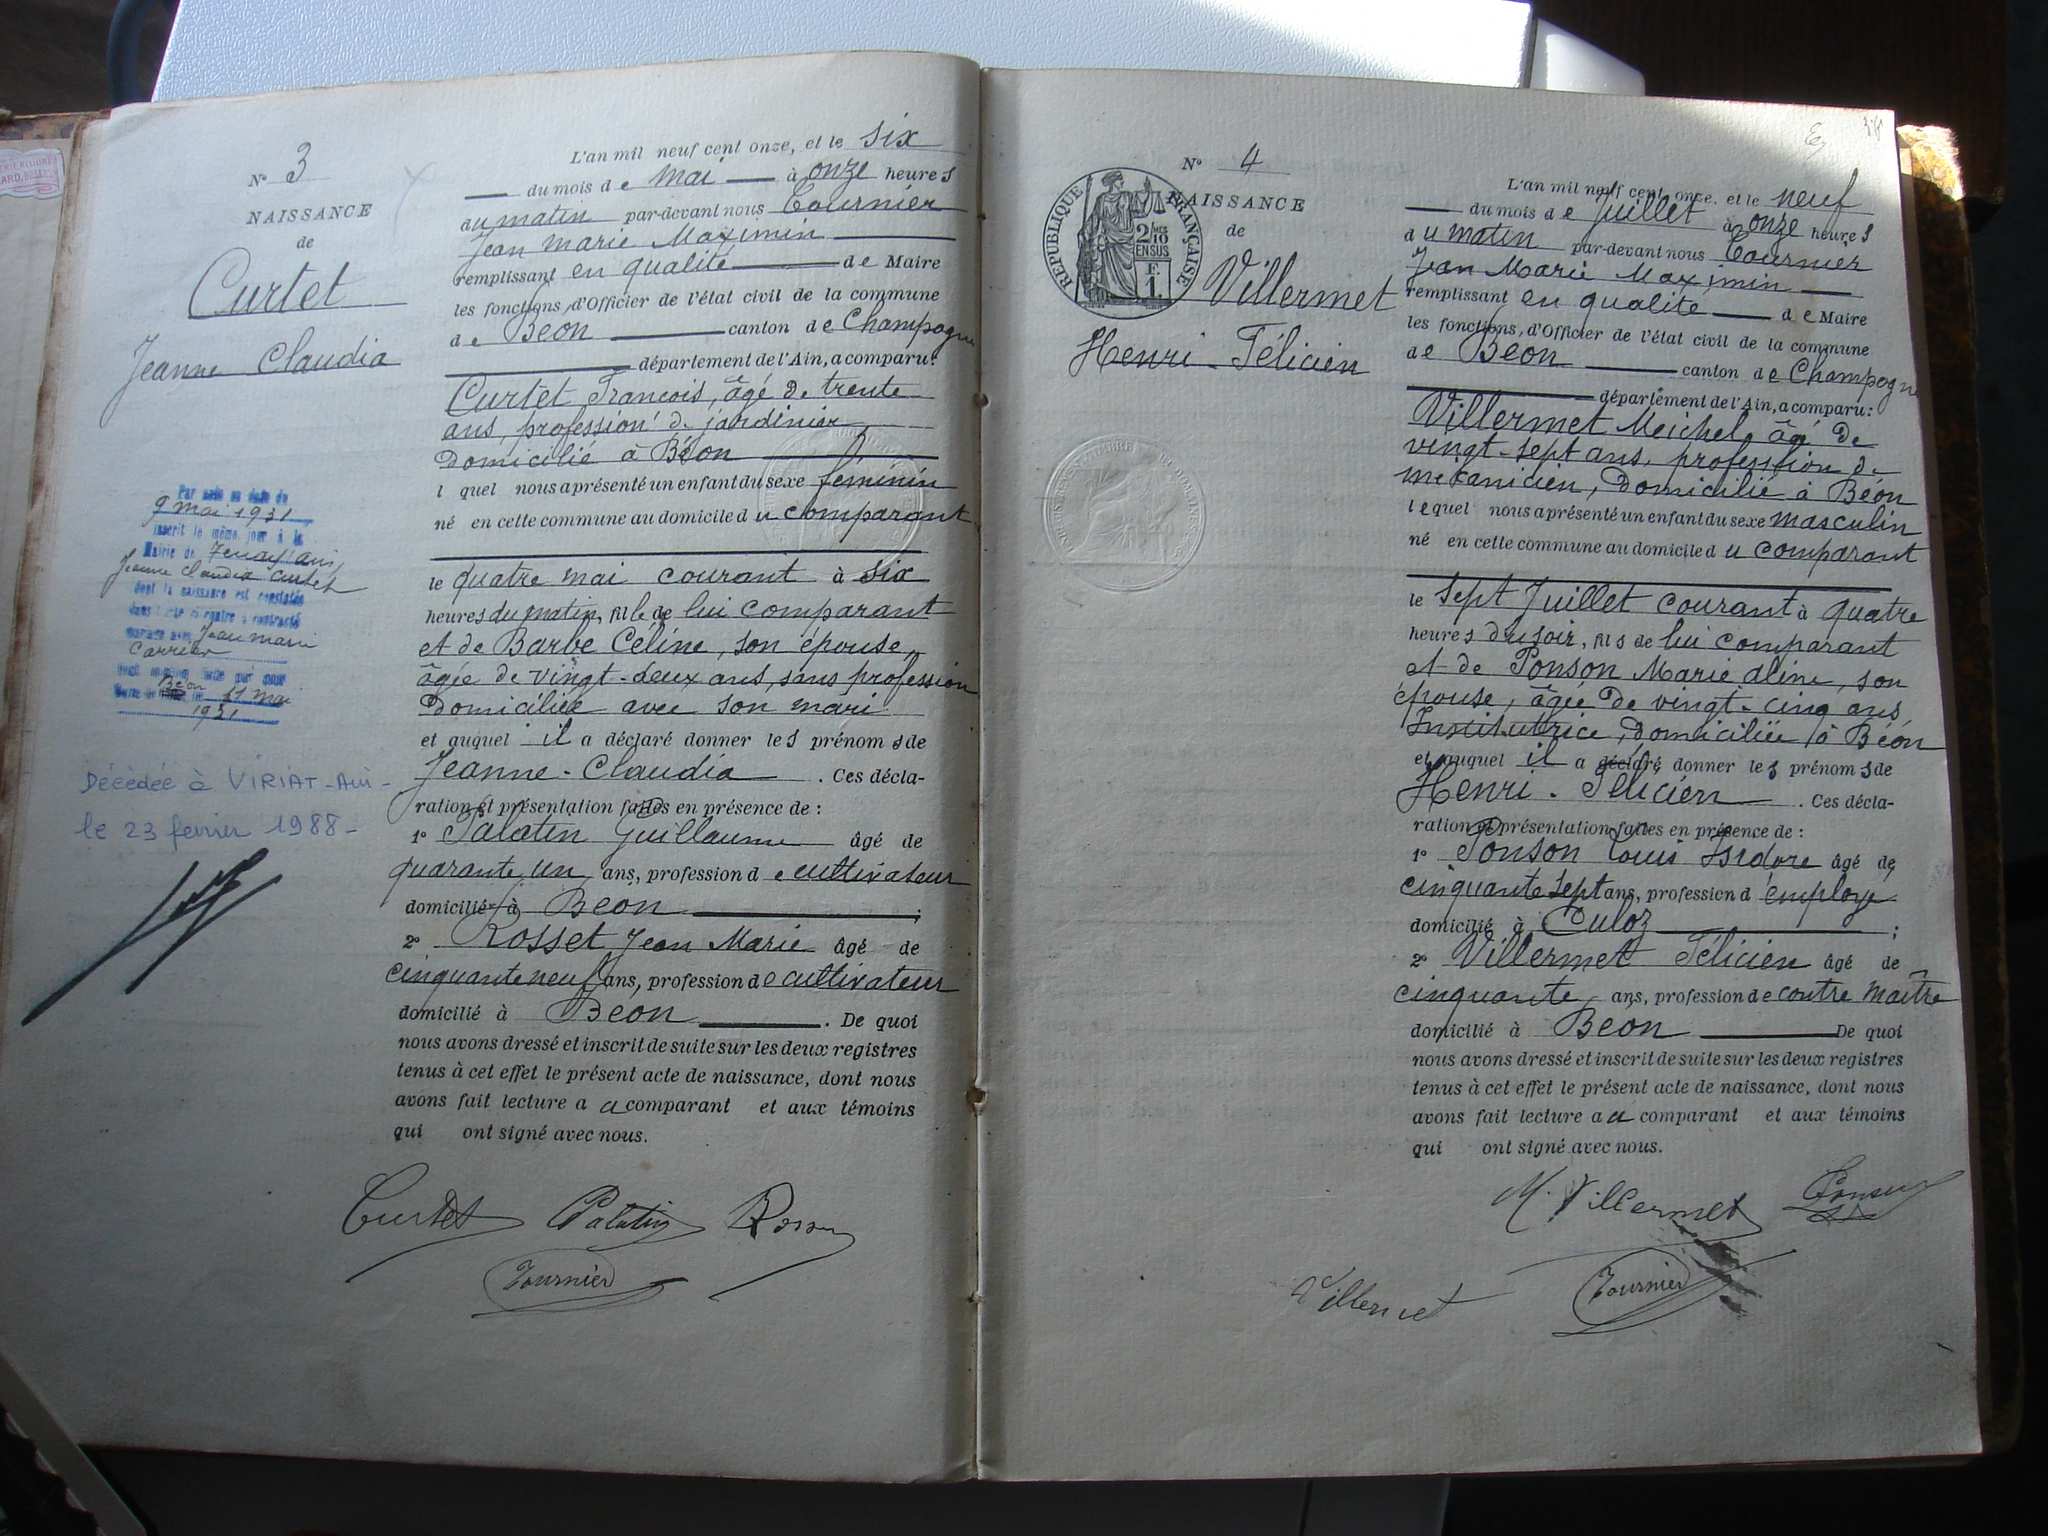 N° 3
NAISSANCE
de
Curtet
Jeanne Claudia
Par acte en date du
9 mai 1931
inscrit le même jour à la
Mairie de Tenay (Ain)
Jeanne Claudia Curtet
dont la naissance est constatée
dans l'acte ci-contre a contracté
mariage avec Jean Marie
Carrier
Béon 11 mai
1931
Décédée à VIRIAT-Ain-
le 23 fevrier 1988-
L'an mil neuf cent onze, et le six
du mois de mai à onze heures
du matin par-devant nous Tournier
Jean Marie Maximin
remplissant en qualité de Maire
les fonctions d'Officier de l'état civil de la commune
de Béon canton de Champagne
département de l'Ain, a comparu:
Curtet François, âgé de trente
ans, profession de jardinier
domicilié à Béon
lequel nous a présenté un enfant du sexe féminin
né en cette commune au domicile du comparant
le quatre mai courant à six
heures du matin, fille de lui comparant
et de Barbe Céline, son épouse,
âgée de vingt-deux ans, sans profession
domiciliée avec son mari
et auquel il a déclaré donner les prénoms de
Jeanne-Claudia . Ces décla-
ration et présentation faites en présence de :
1° Palatin Guillaume âgé de
quarante un ans, profession de cultivateur
domicilié à Béon ;
2° Rosset Jean Marie âgé de
cinquante neuf ans, profession de cultivateur
domicilié à Béon . De quoi
nous avons dressé et inscrit de suite sur les deux registres
tenus à cet effet le présent acte de naissance, dont nous
avons fait lecture au comparant et aux témoins
qui ont signé avec nous.
Curtet Palatin
Tournier
N° 4
NAISSANCE
de
RÉPUBLIQUE FRANÇAISE
2/10 EN SUS
F. 1.
Villermet
Henri-Félicien
L'an mil neuf cent onze, et le neuf
du mois de Juillet à onze heures
du matin par-devant nous Tournier
Jean Marie Maximin
remplissant en qualité de Maire
les fonctions, d'Officier de l'état civil de la commune
de Béon canton de Champagne
département de l'Ain, a comparu:
Villermet Meichel, âgé de
vingt-sept ans, profession de
mécanicien, domicilié à Béon
lequel nous a présenté un enfant du sexe masculin
né en cette commune au domicile du comparant
le sept Juillet courant à quatre
heures du soir, fils de lui comparant
et de Ponson Marie Aline, son
épouse, âgée de vingt-cinq ans,
Institutrice, domiciliée à Béon
et auquel il a déclaré donner les prénoms de
Henri-Félicien . Ces décla-
ration et présentation faites en présence de :
1° Ponson Louis Isidore âgé de
cinquante sept ans, profession d'employé
domicilié à Culoz ;
2° Villermet Félicien âgé de
cinquante, ans, profession de contre maître
domicilié à Béon De quoi
nous avons dressé et inscrit de suite sur les deux registres
tenus à cet effet le présent acte de naissance, dont nous
avons fait lecture au comparant et aux témoins
qui ont signé avec nous.
M. Villermet Ponson
Villermet Tournier